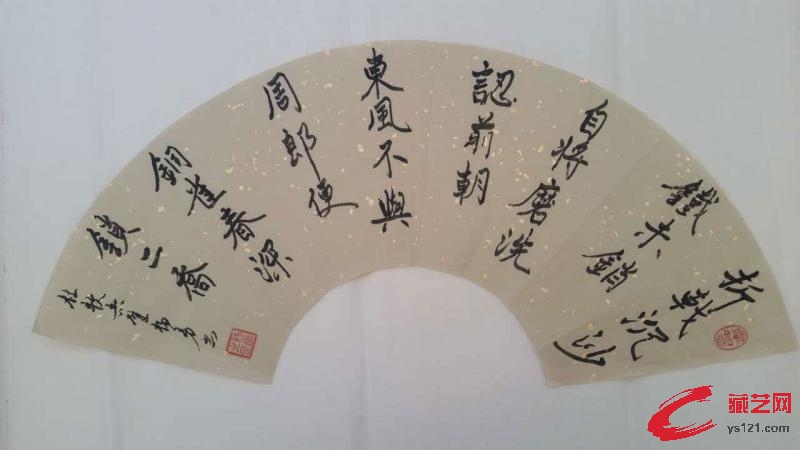 折戟沉沙
鐵未銷
自將磨洗
認前朝
東風不與
周郎便
銅雀春深
鎖二喬
杜牧
藏艺网
ys121.com